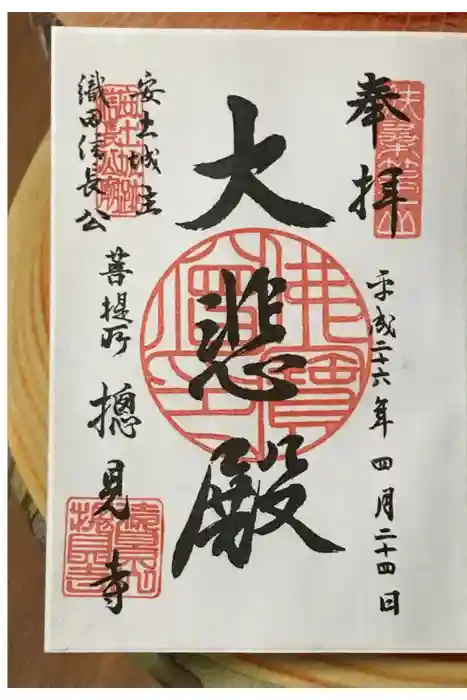 奉拝
平成二十六年四月二十四日
大悲殿
安土城主
織田信長公
菩提所 摠見寺